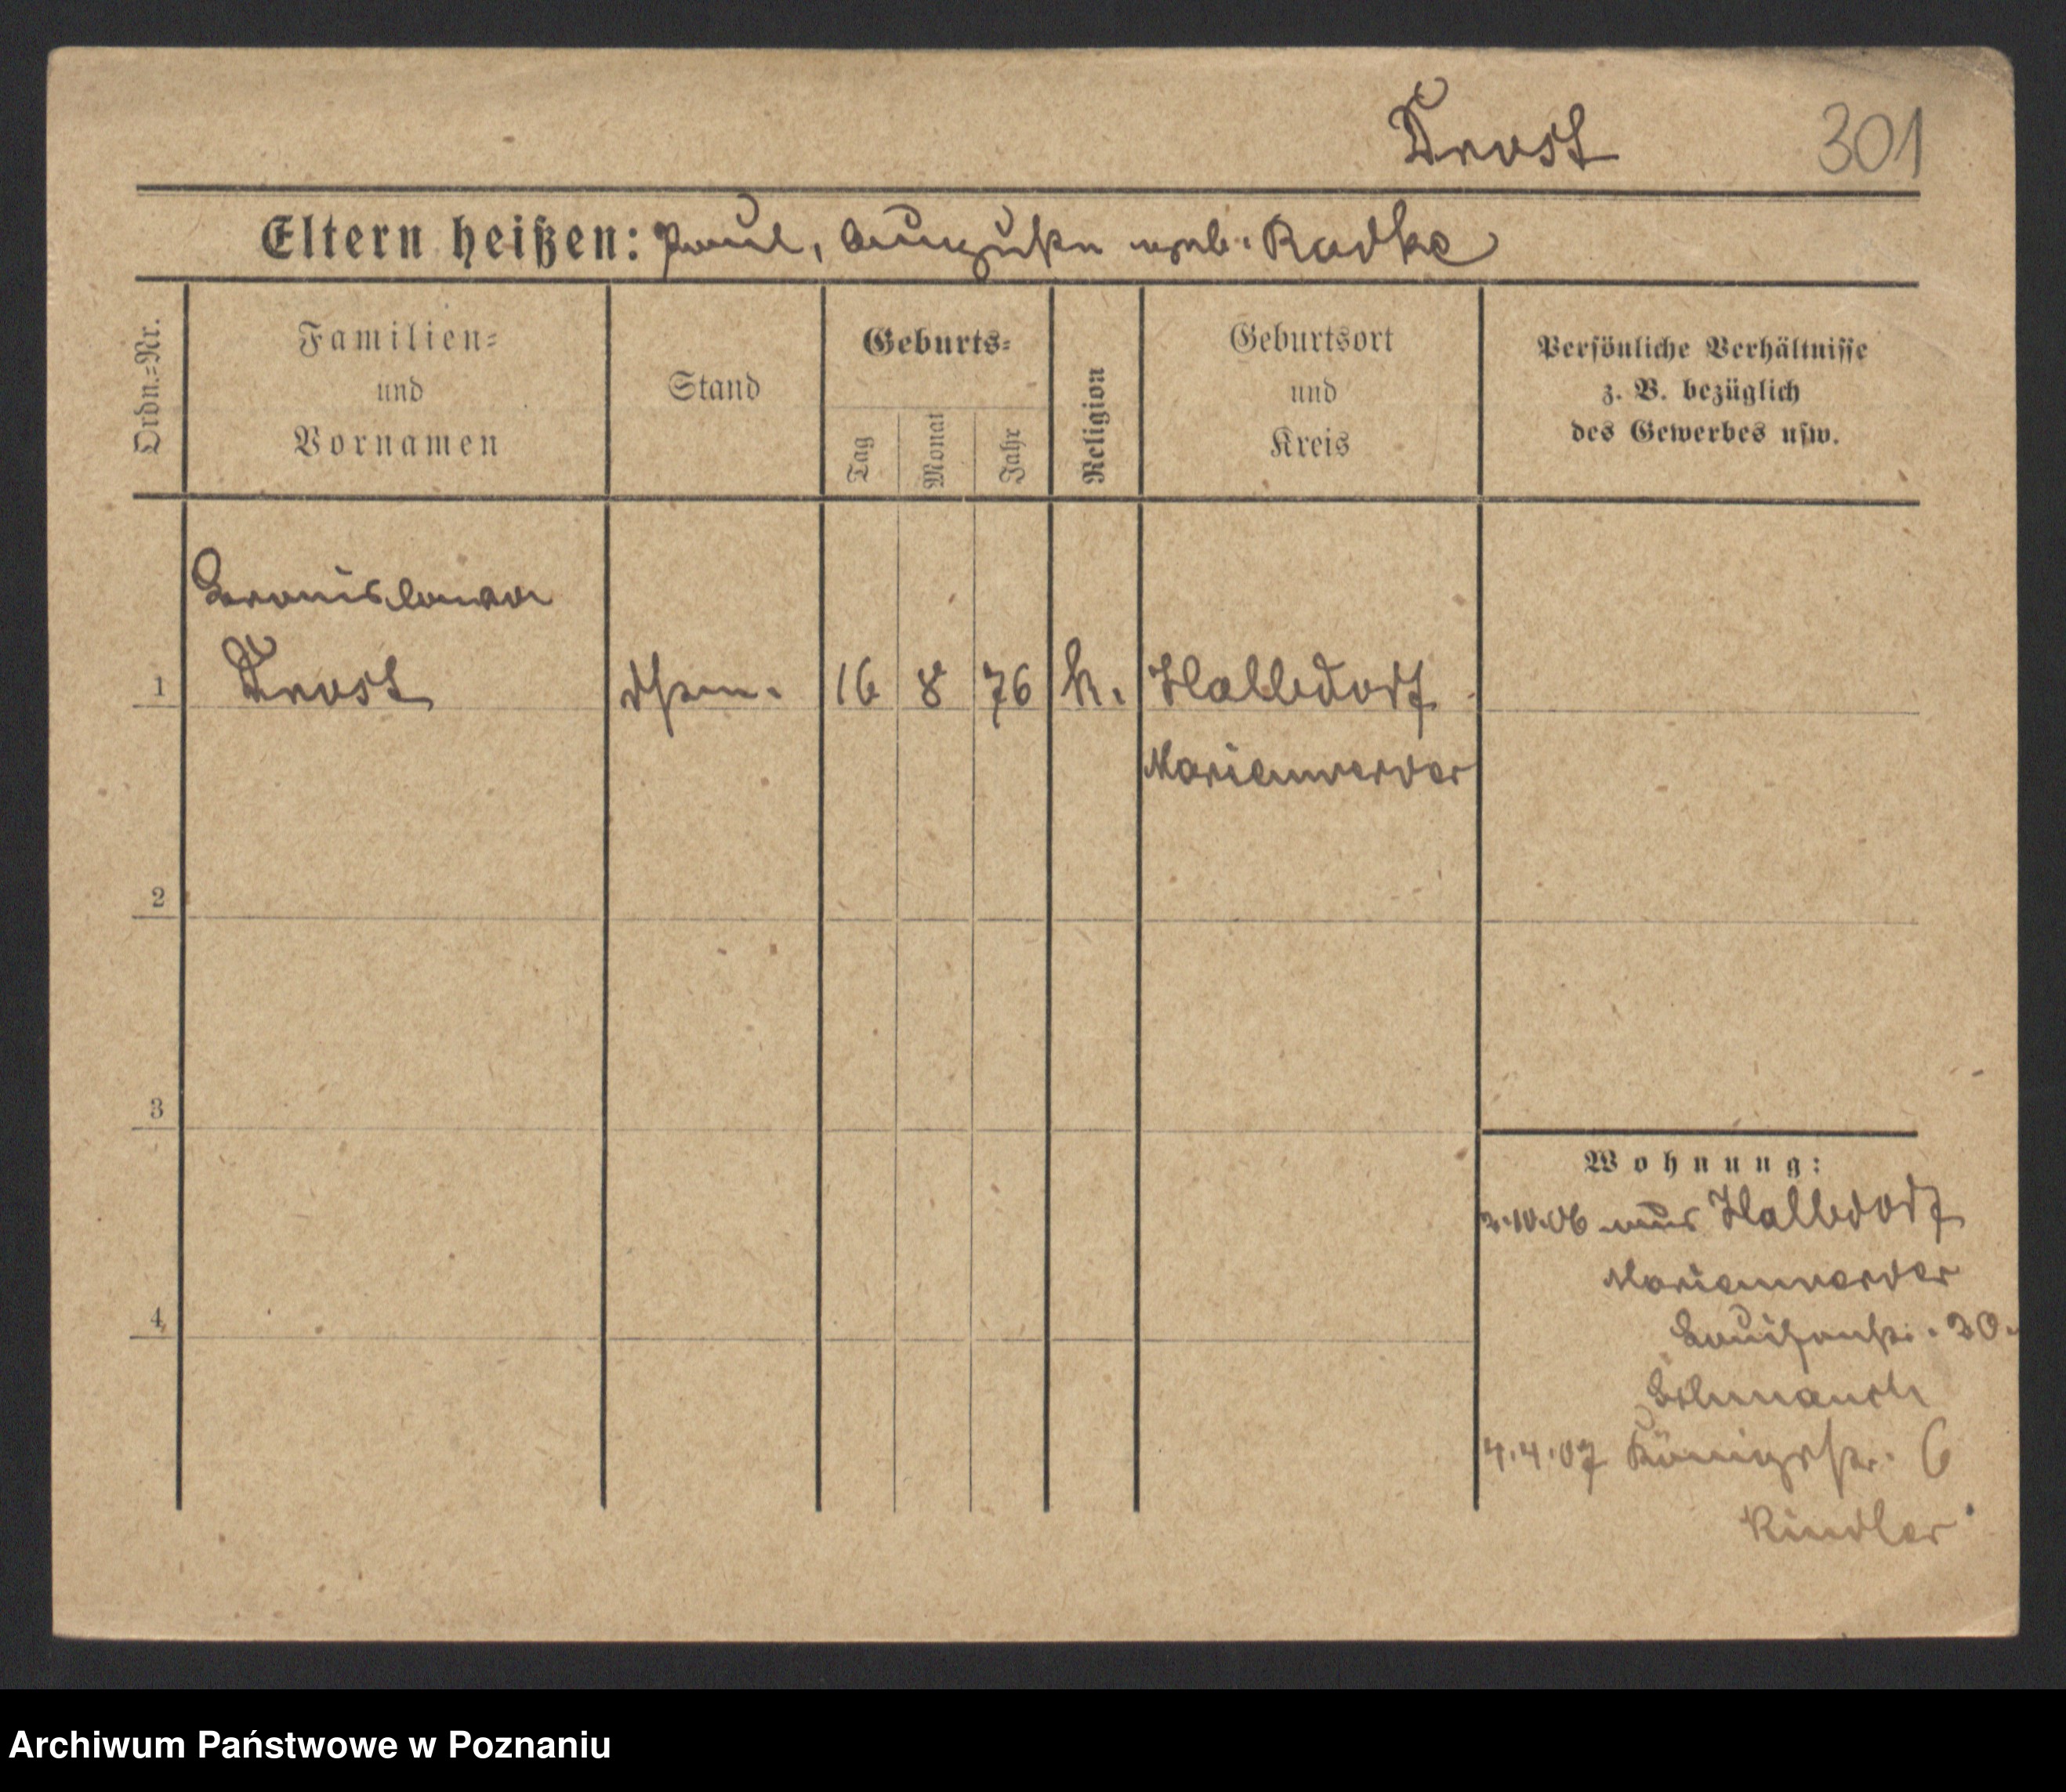 Trost 301
Eltern heißen: Paul, Auguste geb. Radke
Ordn.-Nr.
Familien-
und
Vornamen
Stand
Geburts-
Tag
Monat
Jahr
Religion
Geburtsort
und
Kreis
Persönliche Verhältnisse
z. B. bezüglich
des Gewerbes usw.
Bronislawa
1 Trost 16 8 76 k. Halbdorf
Marienwerder
2
3
4
Wohnung:
2.10.06 aus Halbdorf
Marienwerder
Louisenstr. 20.
4.4.07 Königstr. 6
Kindler
Archiwum Państwowe w Poznaniu